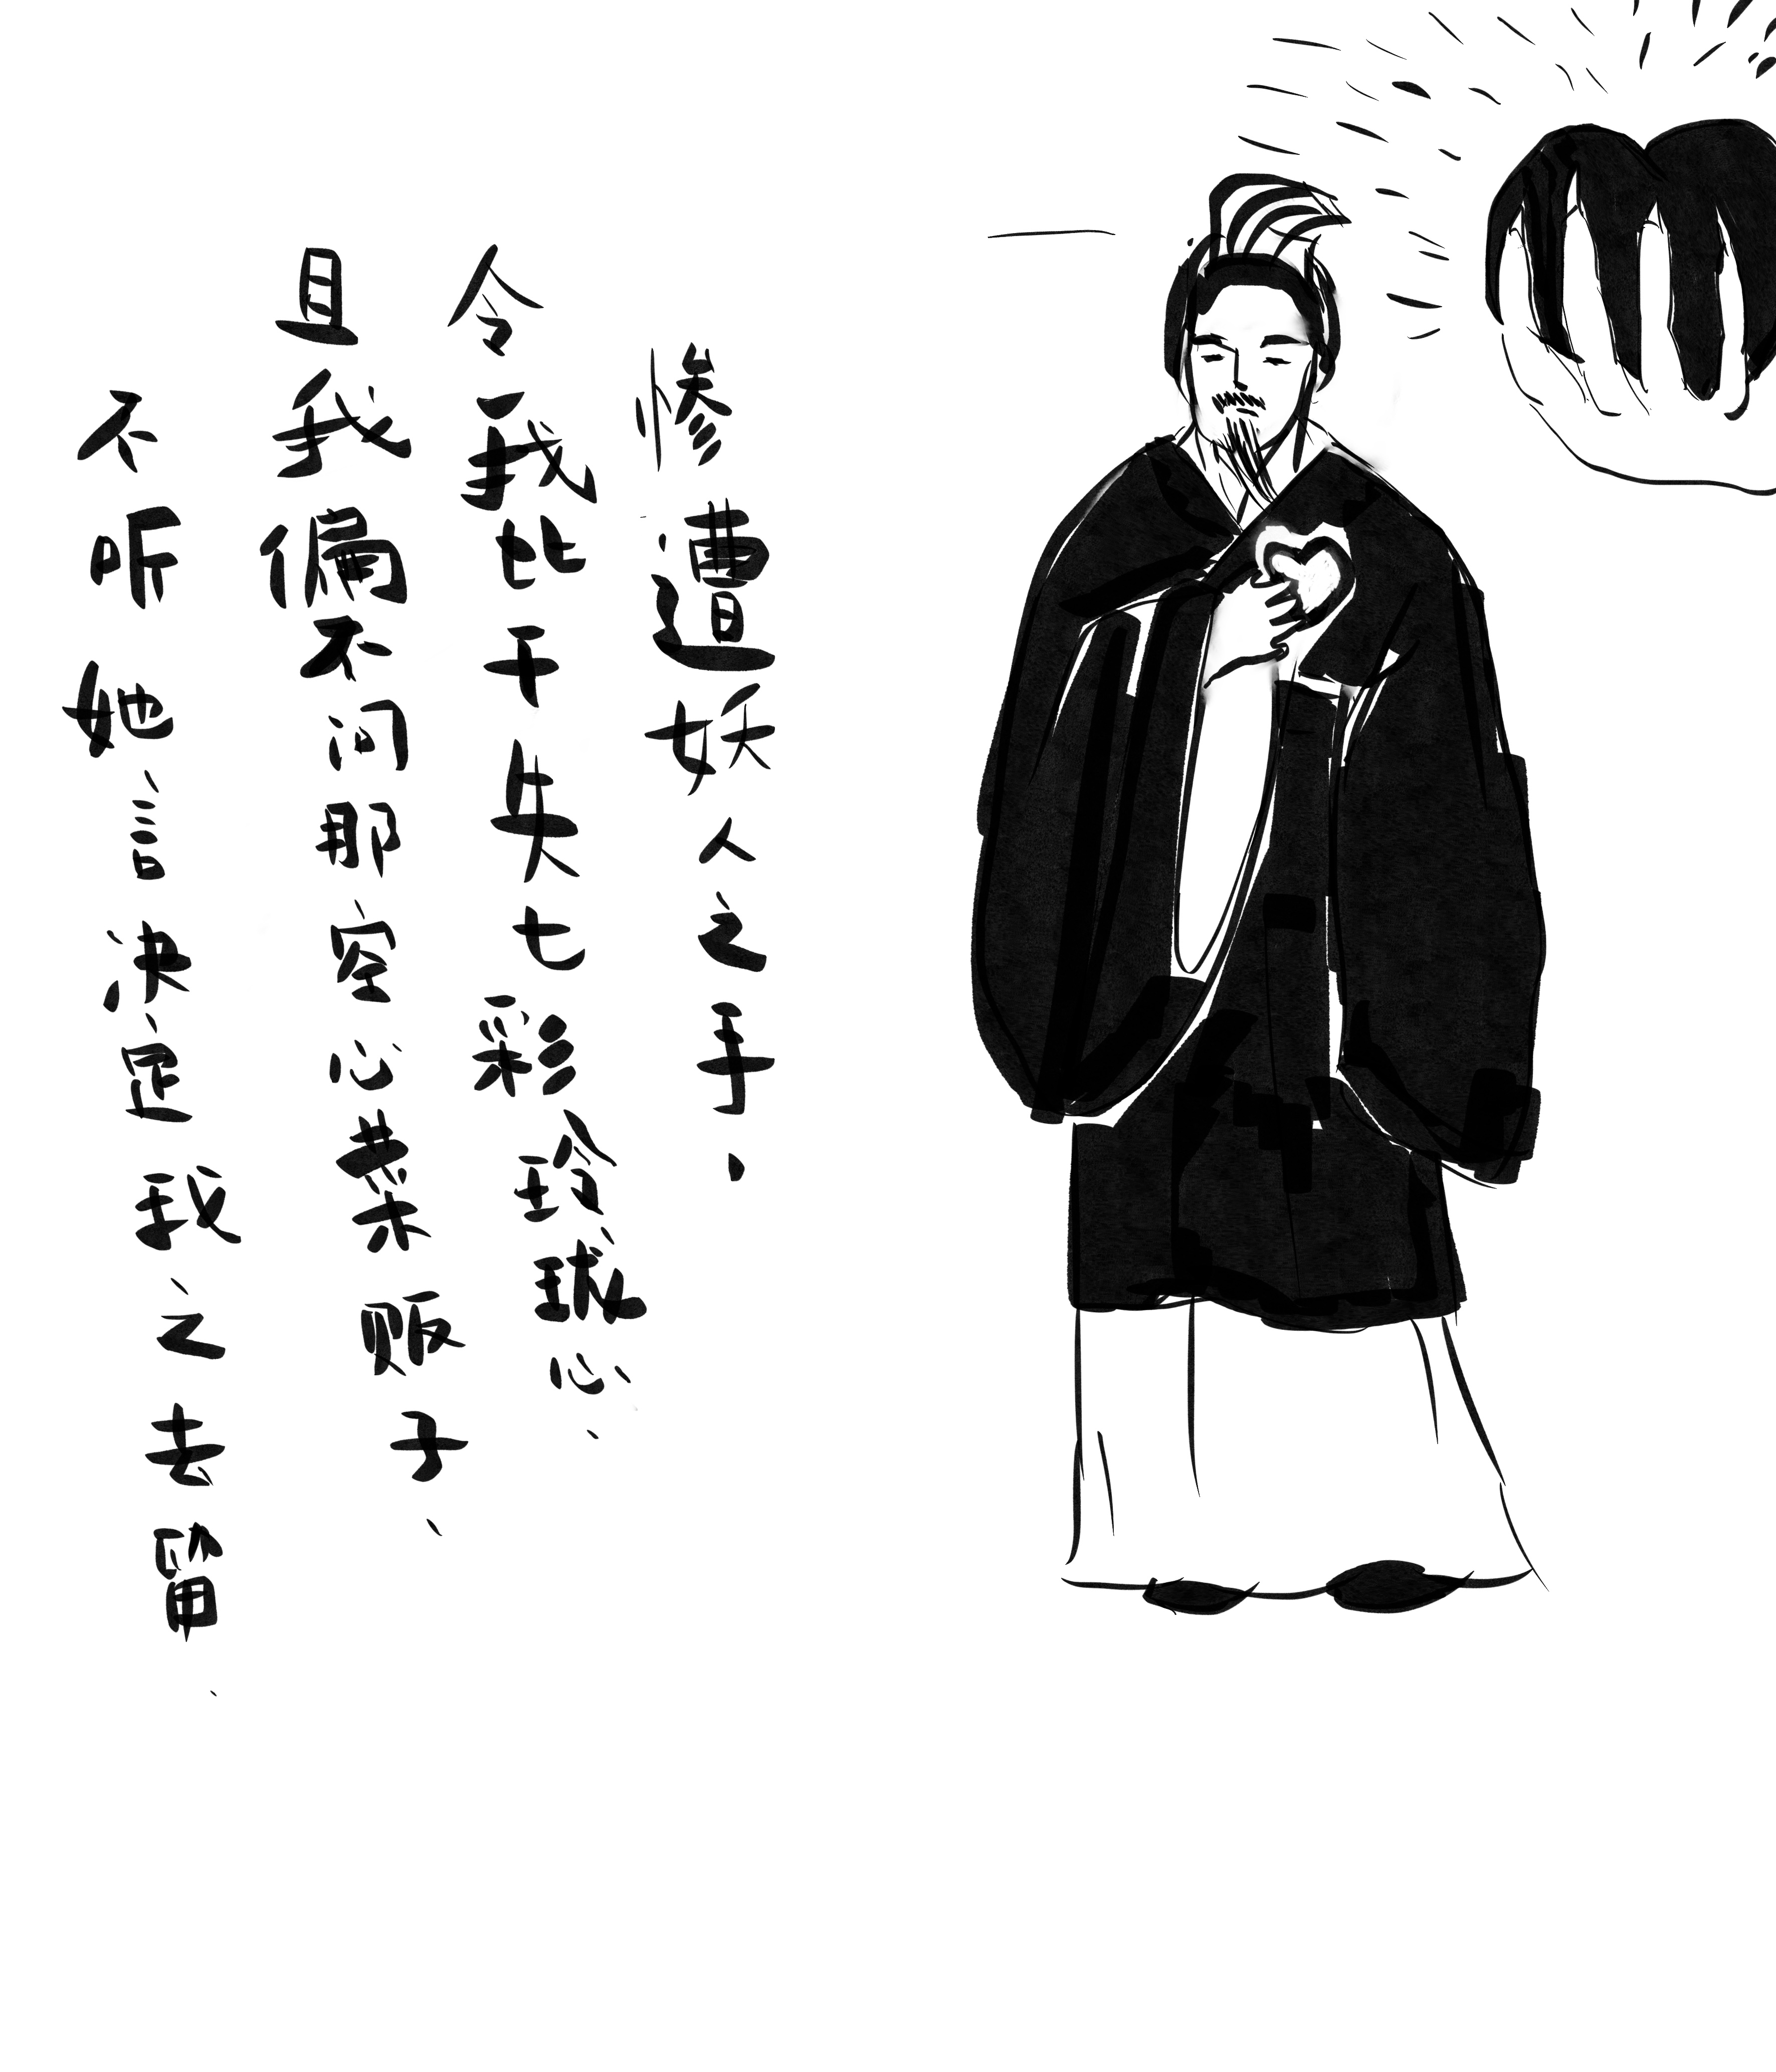 惨遭妖人之手、
令我比干失七彩玲珑心、
且我偏不问那空心菜贩子、
不听她言决定我之去留、